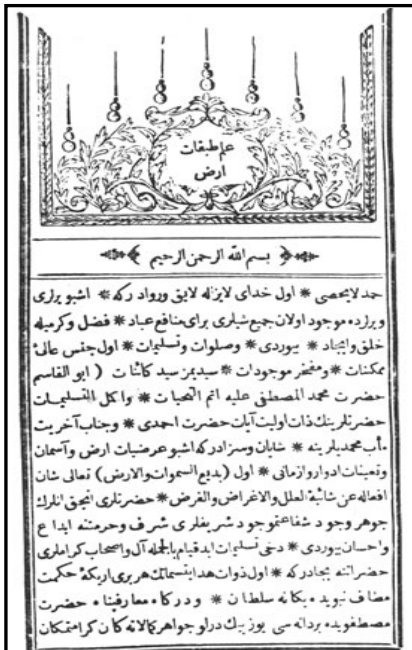 علم طبقات
ارض
بسم الله الرحمن الرحيم
حمد لايحصى * اول خداى لايزاله لايق ورواد ركه * اشبو يرلرى
ويرلرده موجود اولان جميع شيلرى براى منافع عباد * فضل وكرميله
خلق وايجاد * بيوردى * وصلوات وتسليمات * اول جنس عالئ
ممكنات * ومفخر موجودات * سيد كائنات ( ابو القاسم
حضرت محمد المصطفى عليه اتم التحيات * واكل التسليمات
حضرتلرينك ذات اوليت آيات حضرت احمدى * وجناب آخريت
مأب محمديلرينه * شايان وسزادركه اشبو عرضيات ارض وآسمان
وتعينات ادوار وازمانى * اول (بديع السموات والارض) تعالى شان
افعاله عن شائبة العلل والاغراض والغرض * حضرتلرى انجق انلرك
جوهر وجود شفاعتموجود شريفلرى شرف وحرمتنه ابداع
واحسان بيوردى * دخى تسليمات ابد قيام بالجمله آل واصحاب كراملرى
حضراتنه بجادركه * اول ذوات هدايتسماتك هر برى اريكۀ حكمت
مضاف نبويده يكانه سلطان * ودركاه معارفپناه حضرت
مصطفويده بردانه سى يوز بيك درلو جواهر كمالاته كان كرامتمكان